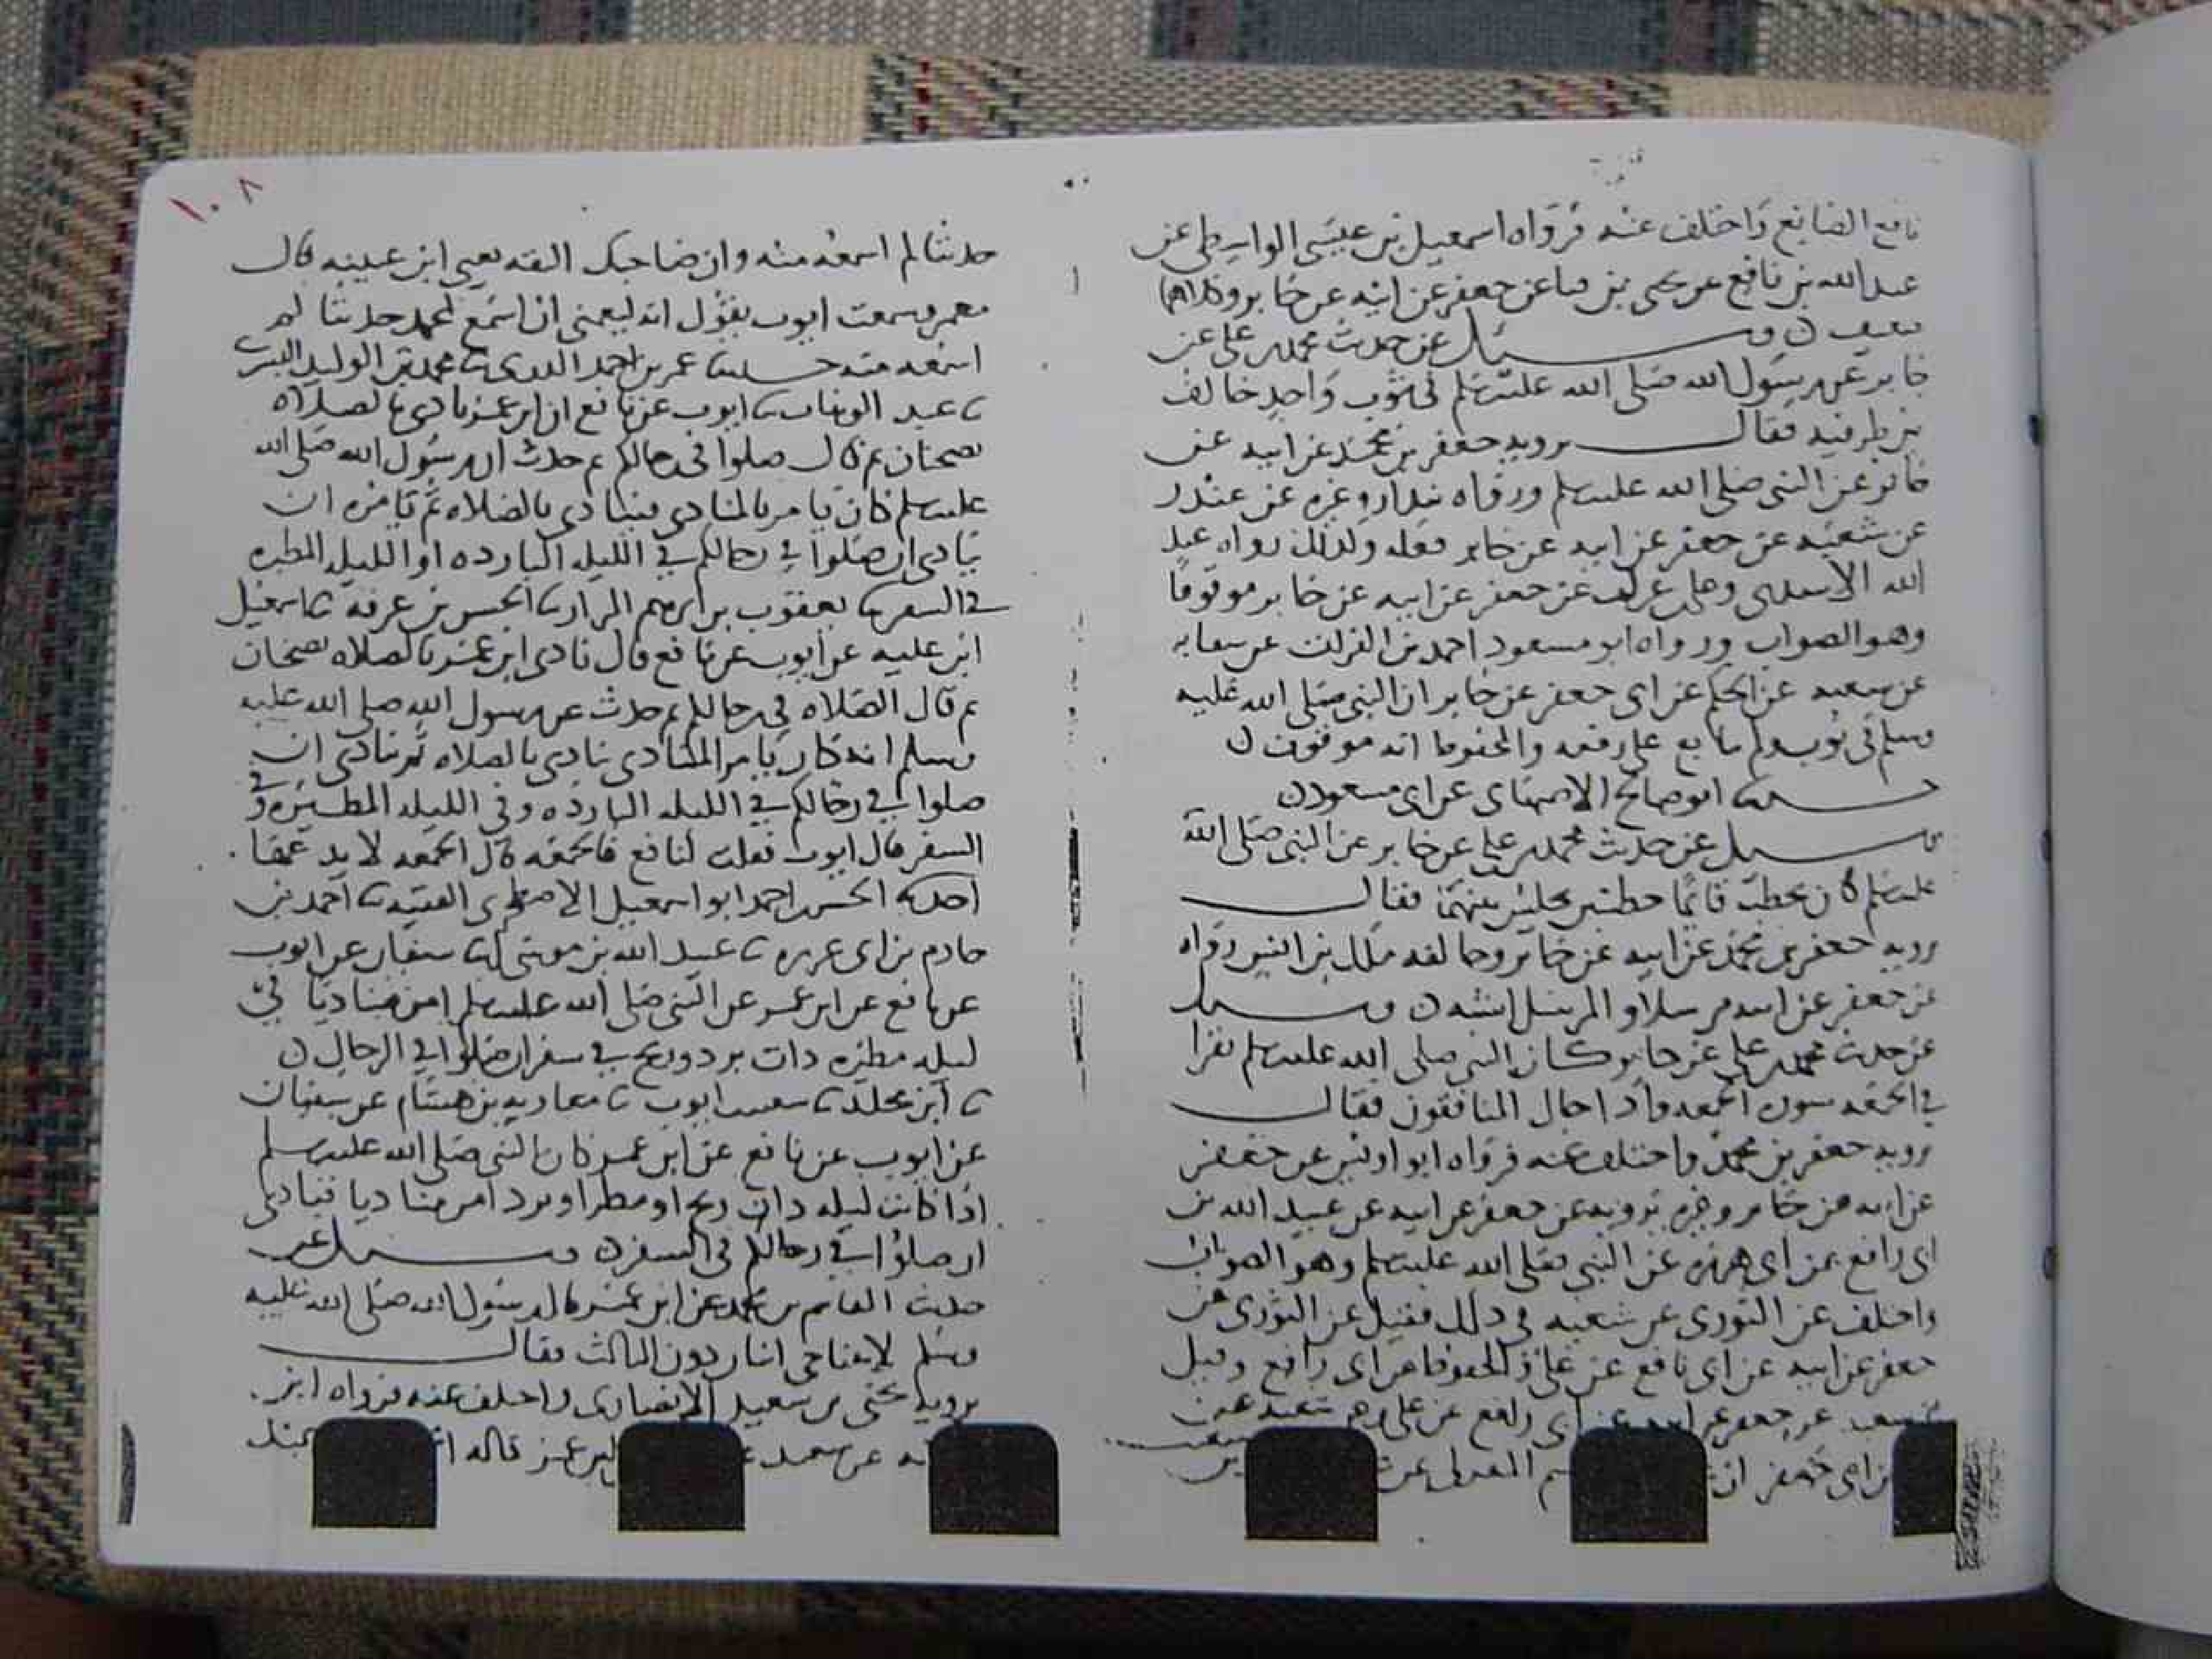 نافع الصائغ واختلف عنه فرواه اسمعيل بن عيسى الواسطي عن
عبد الله بن نافع عن يحيى بن عن جعفر عن ابيه عن جابر
وسئل عن حديث محمد بن علي عن
جابر عن رسول الله صلى الله عليه وسلم في ثوب واحد خالف
بين طرفيه فقال يرويه جعفر بن محمد عن ابيه عن
جابر عن النبي صلى الله عليه وسلم ورواه بندار وغيره عن غندر
عن شعبه عن جعفر عن ابيه عن جابر فعله وكذلك رواه عبد
الله وعلي بن غراب عن جعفر عن ابيه عن جابر موقوفا
وهو الصواب ورواه ابو مسعود احمد بن الفرات عن شبابه
عن شعبه عن الحكم عن ابي جعفر عن جابر ان النبي صلى الله عليه
وسلم في ثوب ولم يتابع على رفعه والمحفوظ انه موقوف ن
حدثنا ابو صالح الاصبهاني عن ابي مسعود ن
وسئل عن حديث محمد بن علي عن جابر عن النبي صلى الله
عليه وسلم كان يخطب قائما خطبتين يجلس بينهما فقال
يرويه جعفر بن محمد عن ابيه عن جابر وخالفه ملك بن انس رواه
عن جعفر عن ابيه مرسلا والمرسل اشبه ن وسئل
عن حديث محمد بن علي عن جابر كان النبي صلى الله عليه وسلم يقرا
في الجمعه سوره الجمعه واذا جاك المنافقون فقال
يرويه جعفر بن محمد واختلف عنه فرواه ابو اويس عن جعفر
عن ابيه عن جابر وغيره يرويه عن جعفر عن ابيه عن عبيد الله بن
ابي رافع عن ابي هريره عن النبي صلى الله عليه وسلم وهو الصواب
واختلف عن الثوري عن شعبه في ذلك فقيل عن الثوري عن
جعفر عن ابيه عن ابي رافع عن علي والمحفوظ عن ابي رافع وقيل
عن جعفر عن ابيه عن ابي رافع عن علي
ابي جعفر
١٠٨
حديثا لم اسمعه منه وان صاحبك الثقه يعني ابن عيينه قال
معمر وسمعت ايوب يقول انه ليعجبني ان اسمع لمحمد حديثا لم
اسمعه منه حدثنا عمر بن احمد ثنا محمد بن الوليد البسري
ثنا عبد الوهاب ثنا ايوب عن نافع ان ابن عمر نادى بالصلاه
بضجنان ثم قال صلوا في رحالكم ثم حدث ان رسول الله صلى الله
عليه وسلم كان يامر المنادي فينادي بالصلاه ثم يامره ان
ينادي ان صلوا في رحالكم في الليله البارده او الليله المطيره
في السفر ثنا يعقوب بن ابراهيم البزاز ثنا الحسن بن عرفه ثنا اسمعيل
ابن عليه عن ايوب عن نافع قال نادى ابن عمر بالصلاه بضجنان
ثم قال الصلاه في رحالكم ثم حدث عن رسول الله صلى الله عليه
وسلم انه كان يامر المنادي ينادي بالصلاه ثم ينادي ان
صلوا في رحالكم في الليله البارده وفي الليله المطيره في
السفر قال ايوب فقلت لنافع
احمد ابو اسمعيل الفقيه ثنا احمد بن
حازم بن ابي غرزه ثنا عبيد الله بن موسى ثنا سفيان عن ايوب
عن نافع عن ابن عمر عن النبي صلى الله عليه وسلم امر مناديا في
ليله مطيره ذات برد وريح في سفر ان صلوا في الرحال ن
ثنا ابن مخلد ثنا ايوب ثنا معاويه بن هشام عن سفيان
عن ايوب عن نافع عن ابن عمر كان النبي صلى الله عليه وسلم
اذا كانت ليله ذات ريح او مطر او برد امر مناديا فنادى
ان صلوا في رحالكم في السفر ن وسئل عن
حديث القاسم بن محمد عن ابن عمر قال رسول الله صلى الله عليه
وسلم لا يتناجى اثنان دون الثالث فقال
يرويه يحيى بن سعيد الانصاري واختلف عنه فرواه ابن